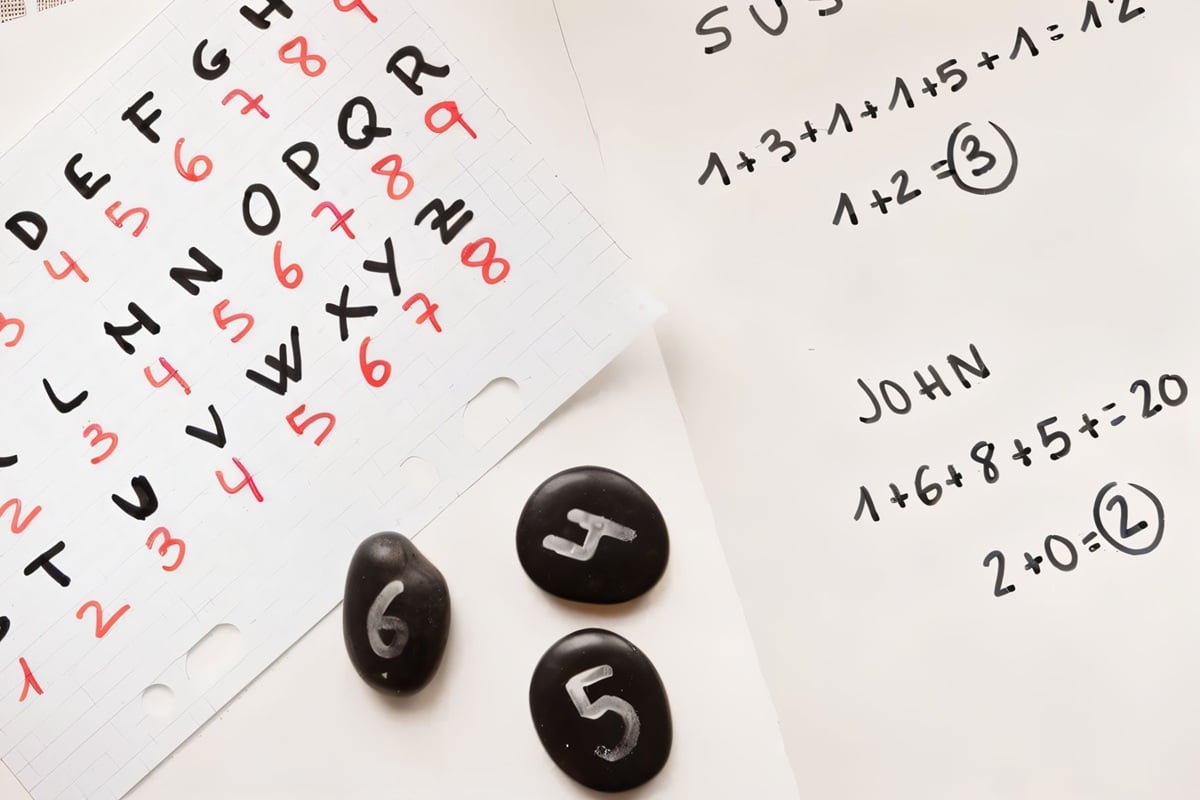 G H
7 8 9
D E F
4 5 6
3
O P Q R
6 7 8 9
L M N
3 4 5
2
U V W X Y Z
3 4 5 6 7 8
T
1 2
SUS
1+3+1+1+5+1=12
1+2=3
JOHN
1+6+8+5+=20
2+0=2
4
6
5